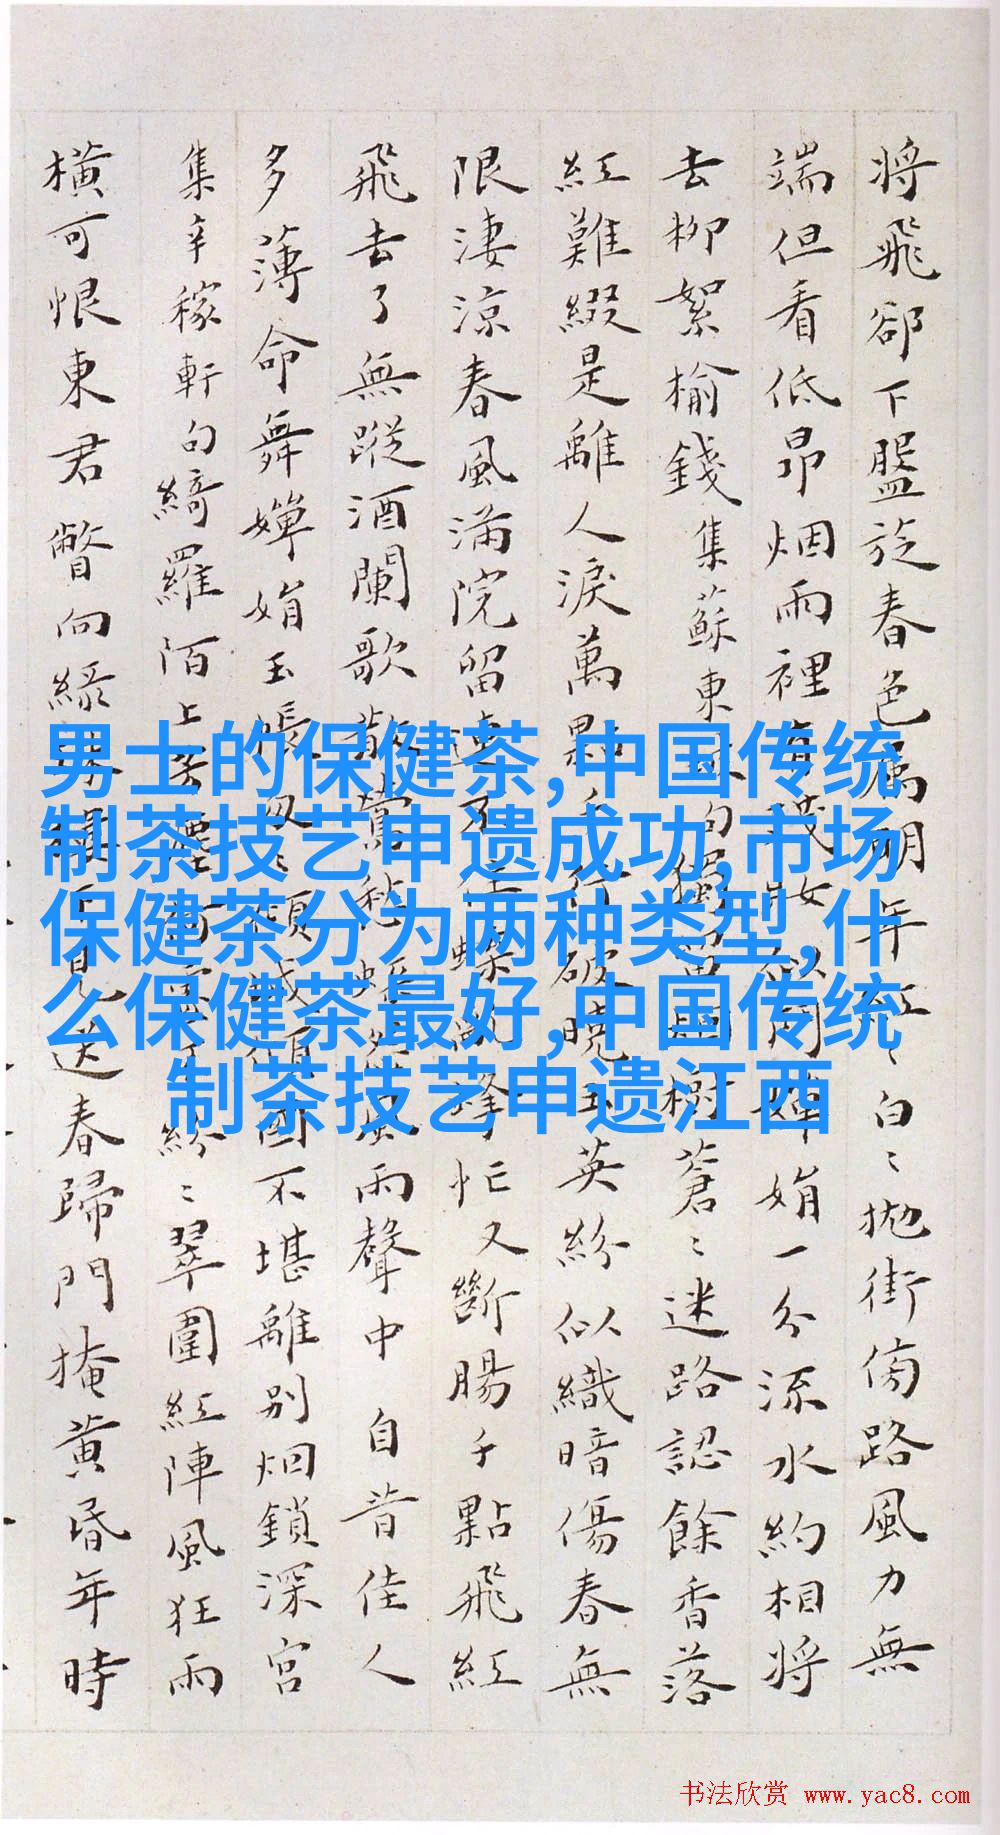 將飛卻下盤旋春色屬明年紅〻白〻拋街傍路風力無
端但看低昂烟雨裡有幾
嬋娟一分流水約相將
去柳絮榆錢集蘇東坡句
樹蒼〻迷路認餘香落
紅難綴是離人淚萬點
破曉玉英紛似織暗傷春無
限淒涼春風滿院留連
蜂忙又斷腸千點飛紅
飛去了無蹤酒闌歌散
風雨聲中 自昔佳人
多薄命舞嬋娟玉帳
傾城傾國不堪離別烟鎖深宮
集辛稼軒句綺羅陌上
紛〻翠圍紅陣風狂雨
橫可恨東君瞥向緣
送春歸門掩黃昏年時
男士的保健茶,中国传统
制茶技艺申遗成功,市场
保健茶分为两种类型,什
么保健茶最好,中国传统
制茶技艺申遗江西
书法欣赏 www.yac8.com